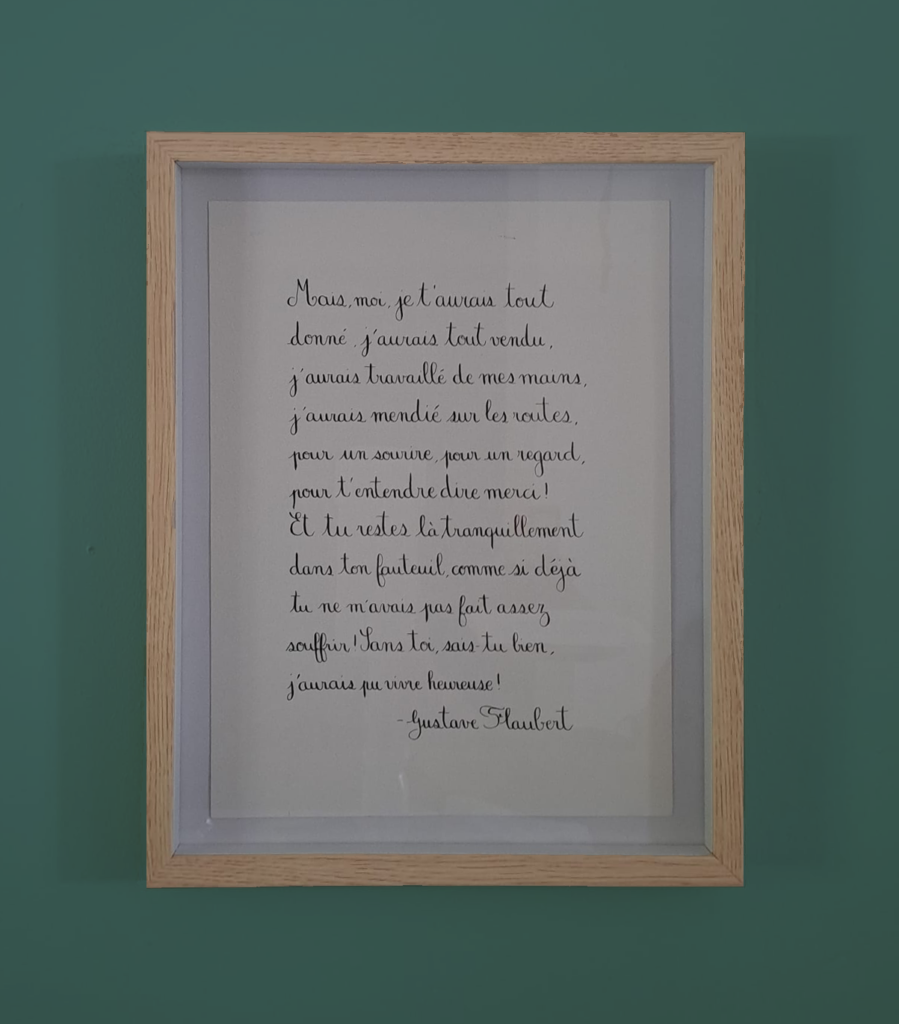 Mais, moi, je t'aurais tout
donné, j'aurais tout vendu,
j'aurais travaillé de mes mains,
j'aurais mendié sur les routes,
pour un sourire, pour un regard,
pour t'entendre dire merci!
Et tu restes là tranquillement
dans ton fauteuil, comme si déjà
tu ne m'avais pas fait assez
souffrir! Sans toi, sais-tu bien,
j'aurais pu vivre heureuse!
-Gustave Flaubert